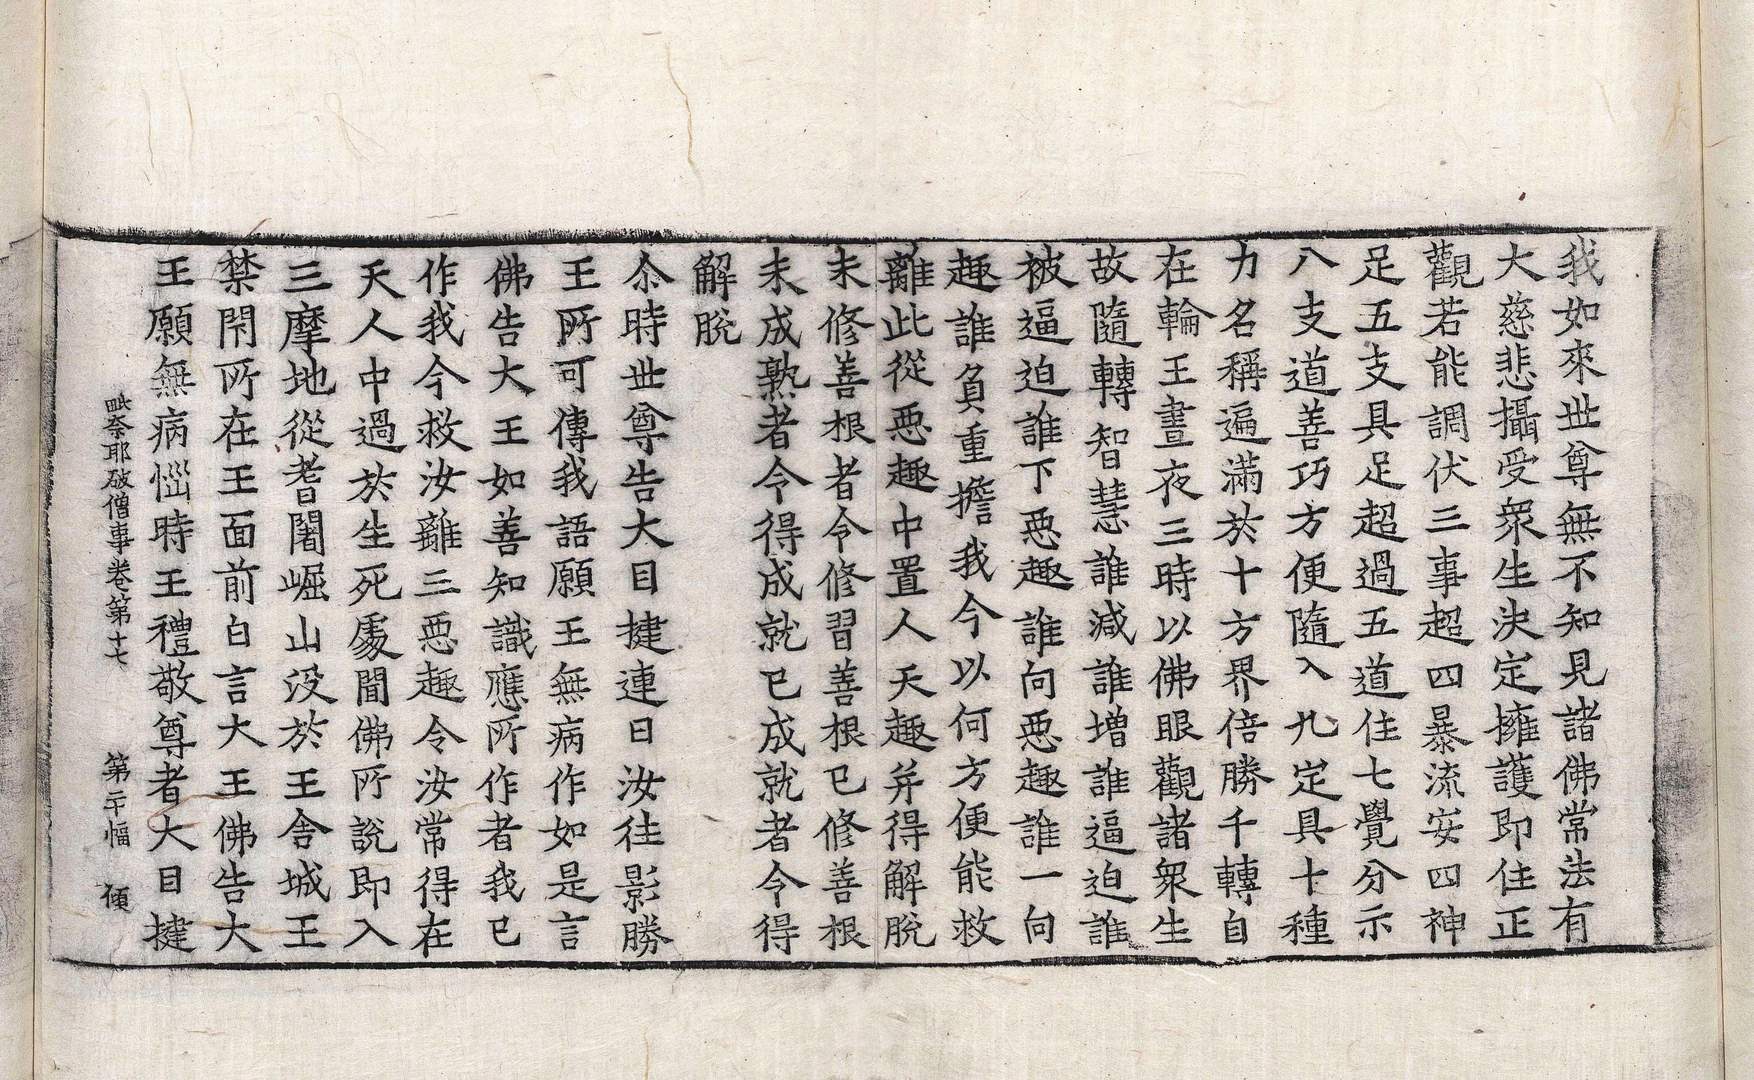 我如來世尊無不知見諸佛常法有
大慈悲攝受眾生決定擁護即住正
觀若能調伏三事超四暴流安四神
足五支具足超過五道住七覺分示
八支道善巧方便隨入九定具十種
力名稱遍滿於十方界倍勝千轉自
在輪王晝夜三時以佛眼觀諸眾生
故隨轉智慧誰減誰增誰逼迫誰
被逼迫誰下惡趣誰向惡趣誰一向
趣誰負重擔我今以何方便能救
離此從惡趣中置人天趣并得解脫
未修善根者令修習善根已修善根
未成熟者令得成就已成就者令得
解脫
尒時世尊告大目揵連曰汝往影勝
王所可傳我語願王無病作如是言
佛告大王如善知識應所作者我已
作我今救汝離三惡趣令汝常得在
天人中過於生死處聞佛所說即入
三摩地從耆闍崛山没於王舍城王
禁閇所在王面前白言大王佛告大
王願無病惱時王禮敬尊者大目揵
毗奈耶破僧事卷第十七 第二十幅 傾